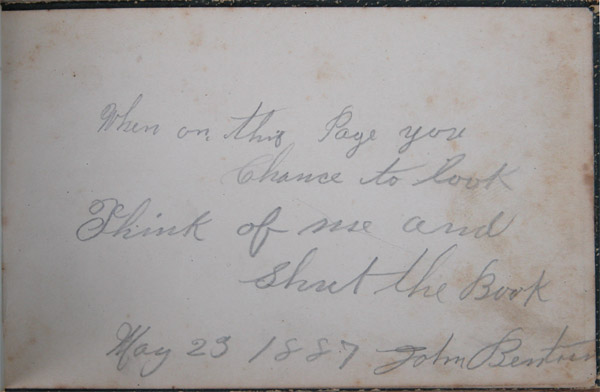 When on this Page you
Chance to look
Think of me and
Shut the Book
May 23 1887 John